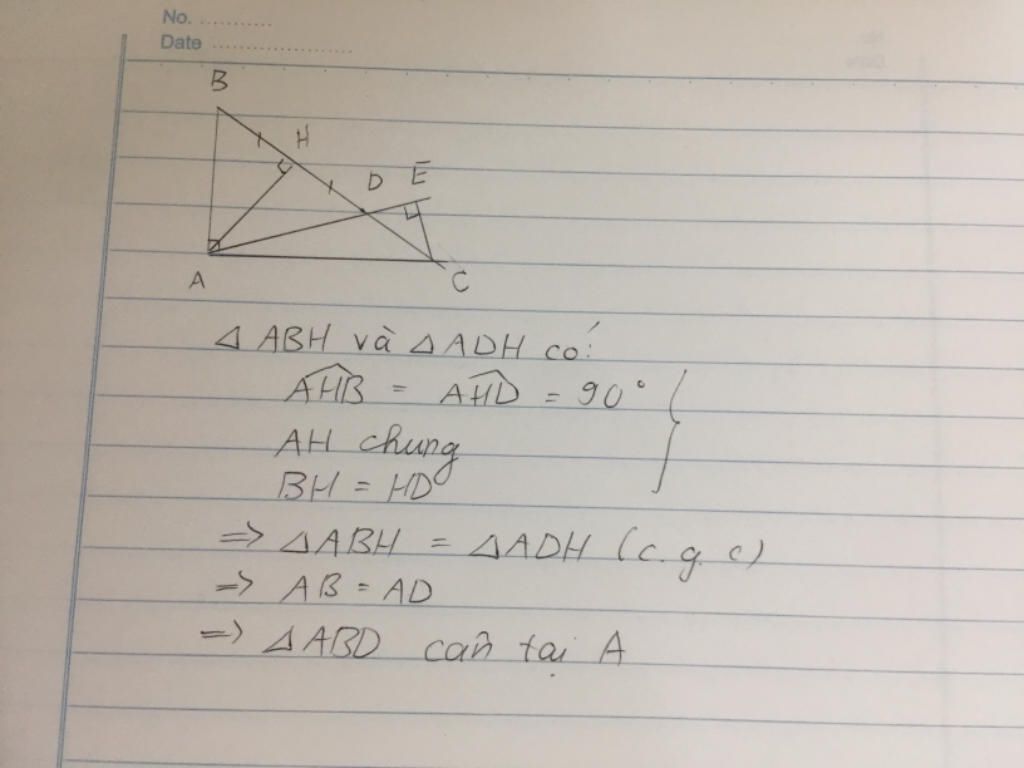 No. ............
Date ........................
B
H
D E
A
C
△ ABH và △ ADH có:
AHB = AHD = 90°
AH chung
BH = HD
=> △ABH = △ADH (c.g.c)
=> AB = AD
=> △ABD cân tại A